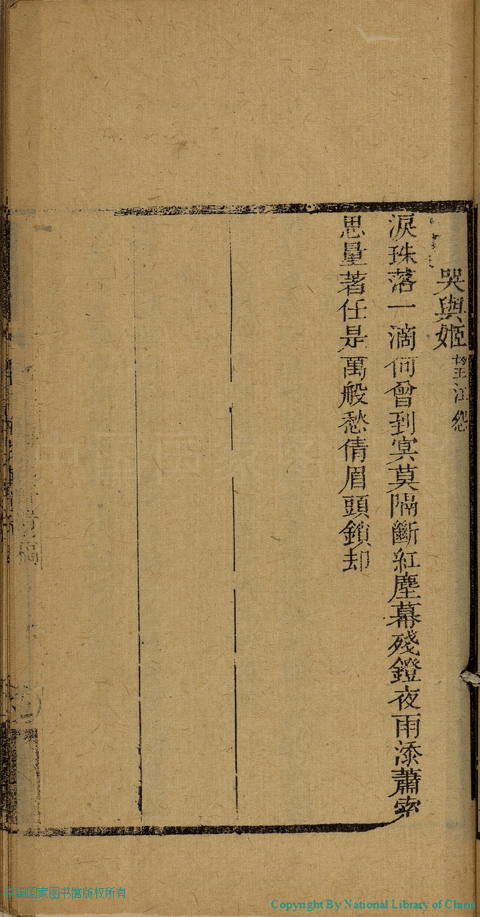 哭與姬 望江怨
淚珠落一滴何曾到㝠莫隔斷紅塵幕殘鐙夜雨添蕭索
思量著任是萬般愁倩眉頭鎖却
國家图书馆版权所有
Copyright By National Library of China